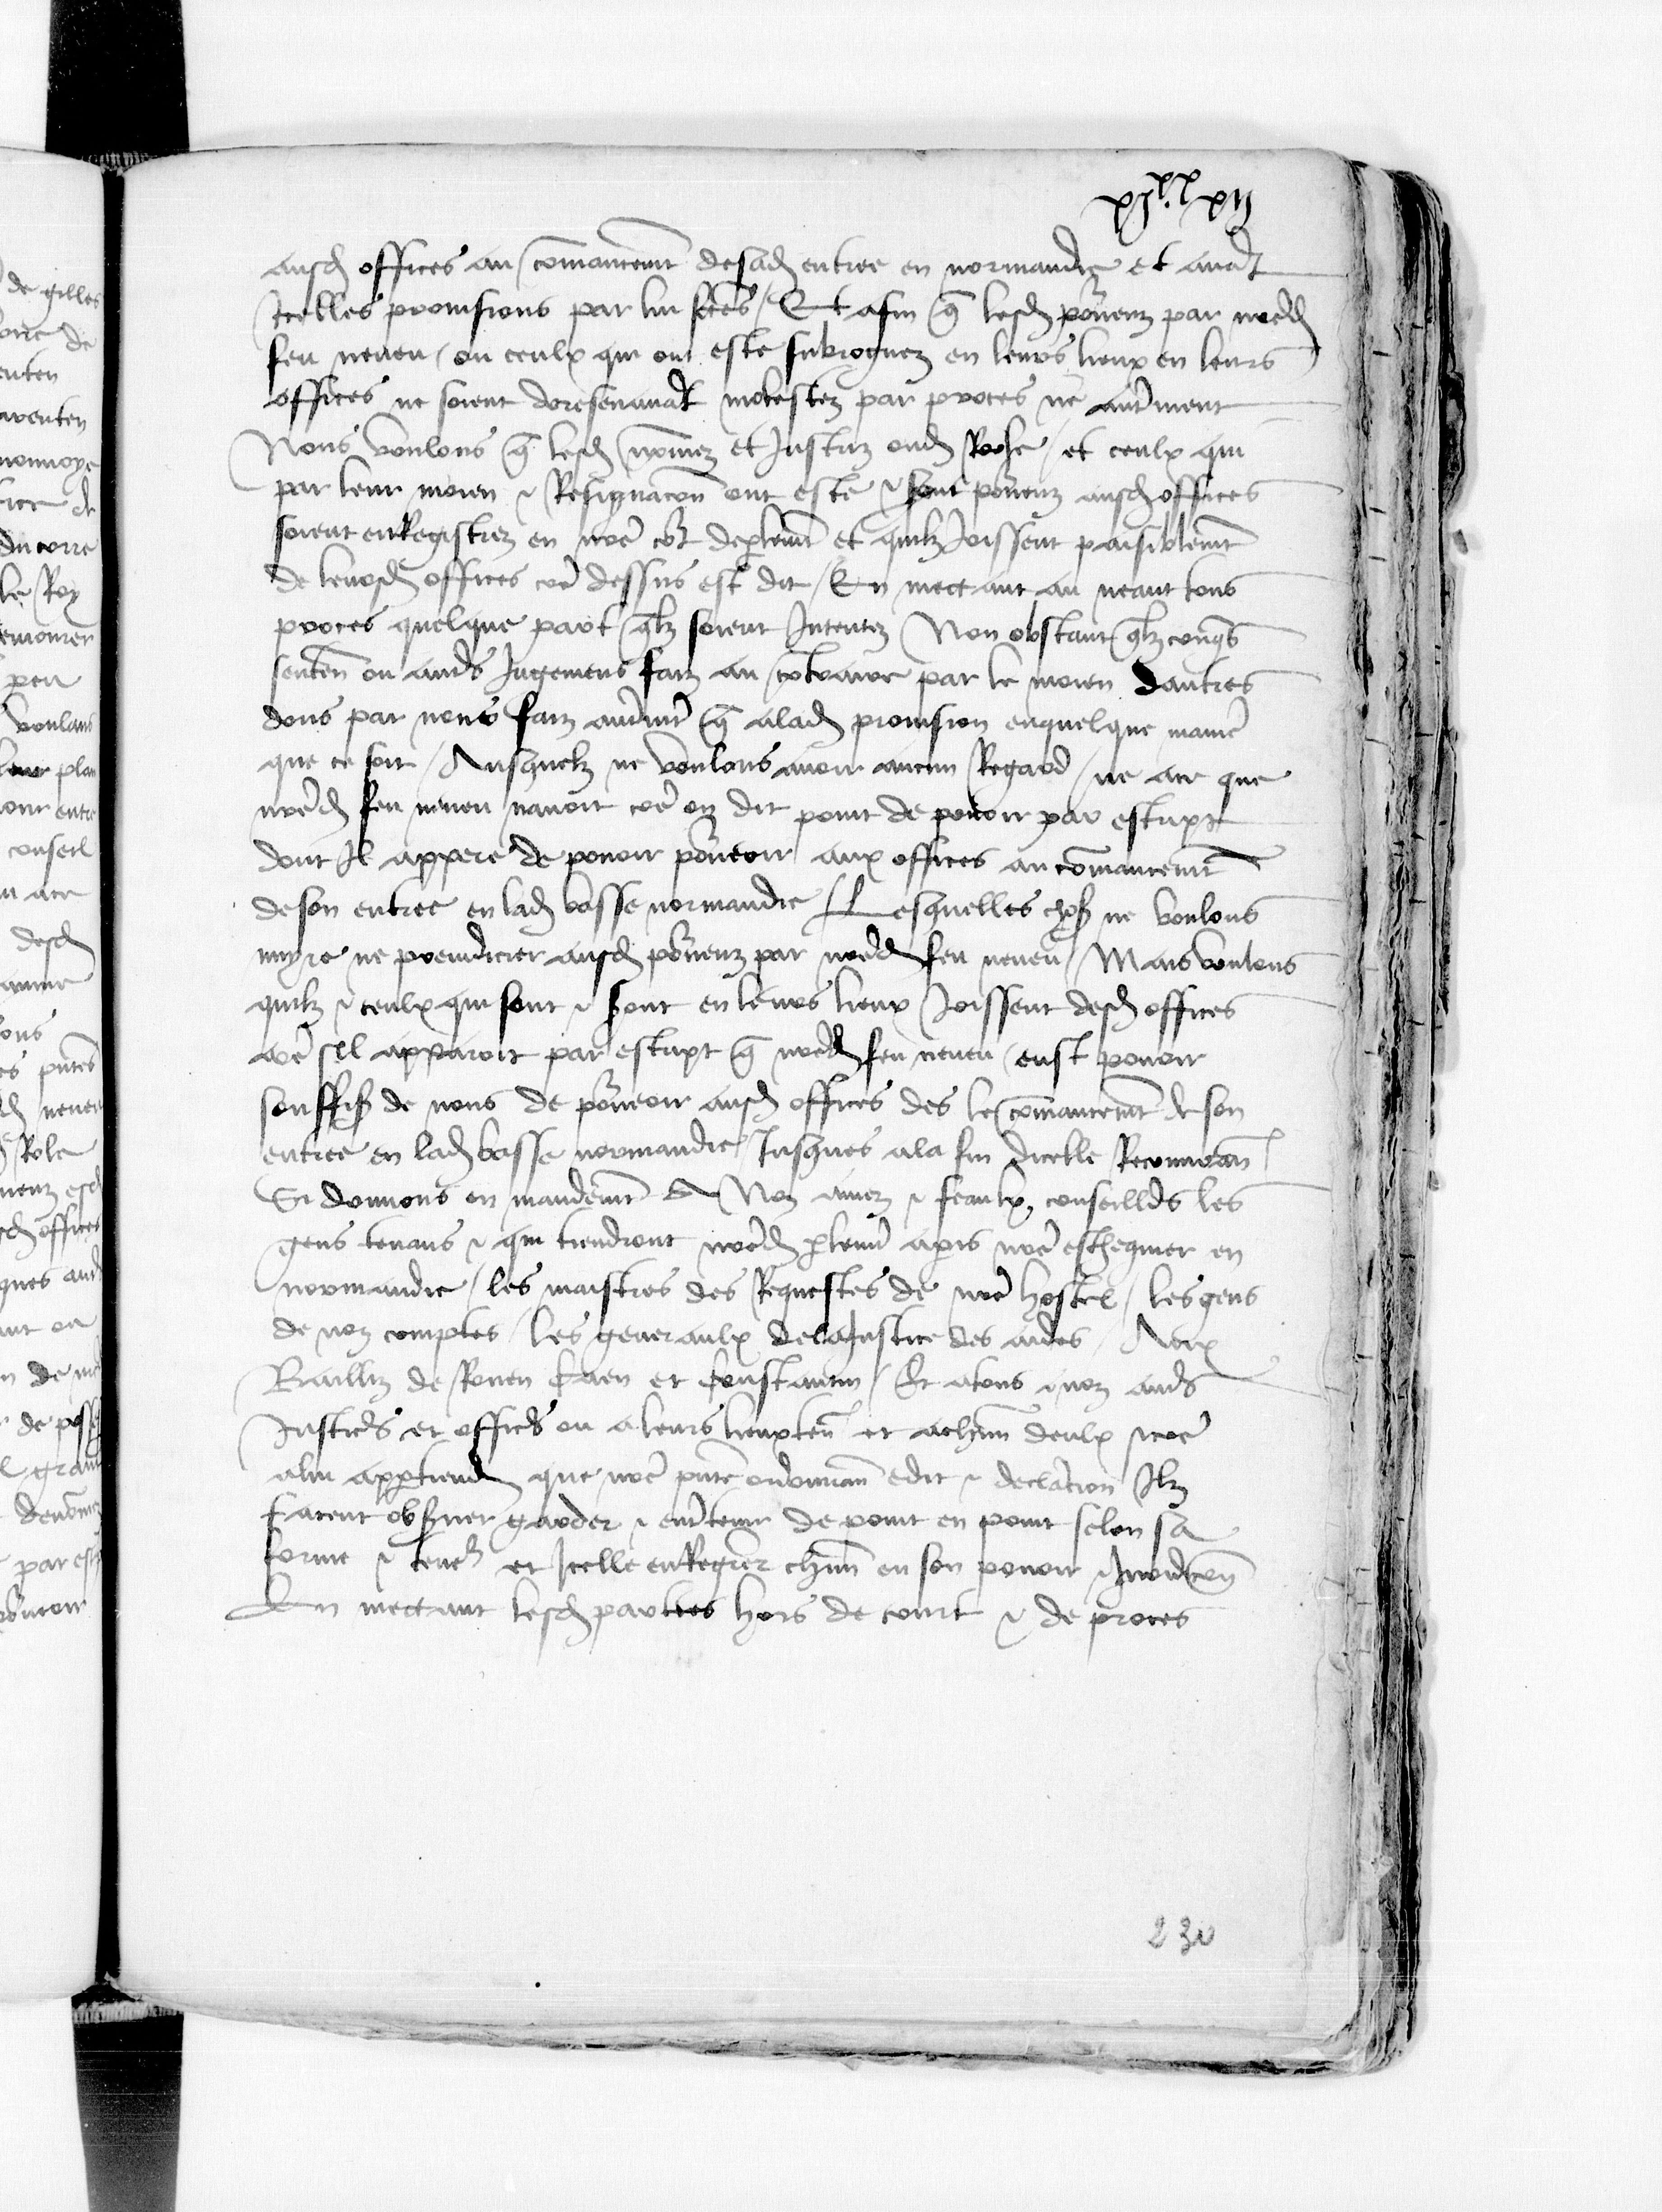 ausd offices au comancemt desad entree en normandie et avat
Icelles provisions par lui fctes / Et afin q lesd pourveuz par nred
feu neveu / ou ceulx qui ont este subroguez en leurs lieux en leurs
offices ne soient doresenavat molestez par proces ne autrment
Nous voulons q lesd nomez et Instituz oud Role / et ceulx qui
par leur moien & Resignacon ont este & sont pourveuz ausd offices
soient enRegistrez en nre crt de plemt et quilz Joissent paisiblemt
de leursd offices coe dessus est dit / En mectant au neant tous
proces quelque part qlz soient Intentez Non obstant qlzconqs
senten ou aucs Jugemens faiz au contraire par le moien dautres
dons par nous faiz autrmt q alad provision enquelque manie
que ce soit / Ausquelz ne voulons avoir aucun Regard / ne ace que
nred feu neveu navoit coe on dit point de povoir par escript
dont Il appere de povoir pourveoir aux offices au comancemt
de son entree en lad basse normandie / Lesquelles choses ne voulons
nuyre ne preiudicier ausd pourveuz par nred feu neveu / Mais voulons
quilz & ceulx qui sont & sont en leurs lieux Joissent desd offices
coe sil apparoit par escript q nred feu neveu eust povoir
souffis de nous de pourveoir ausd offices des le comancemt de son
entree en lad basse normandie / Jusques ala fin dicelle Recouvran
Si donnons en mandemt A Noz amez & feaulx conseillrs les
gens tenans & qui tiendront nred plemt apres nre eschequier en
normandie / les maistres des Requestes de nre hostel / les gens
de noz comptes / les generaulx dela Justice des aides / Aux
Bailliz de Rouen Caen et Constantin / Et atous & noz aucs
Justicrs et officrs ou a leurs lieuxten et achun deulx sicoe
alui appartiend que nre pnte ordonnan edit & declaration Ilz
facent observer garder & entretenir de point en point selon sa
forme & tener et Icelle enRegrer chun en son povoir & Juridicon
En mectant lesd parties hors de court & de proces
230